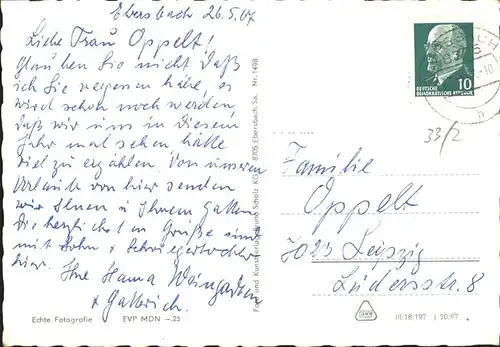 Ebersbach 26.5.67
Liebe Frau Oppelt!
Glauben Sie nicht daß
ich Sie vergessen habe, es
wird schon noch werden,
daß wir uns in diesem
Jahr mal sehen hätte
viel zu erzählen. Von unseren
Urlaub von hier senden
wir Ihnen u Ihrem Gatten
die herzlichsten Grüße
mit Sohn + Schwiegertochter
hier. Ihre Hanna Weingarten
+ Gallrich.
Echte Fotografie EVP MDN –.25
Foto- und Kunstverlag und Scholz KG 8705 Ebersbach/Sa. Nr. 1498
10
DEUTSCHE
DEMOKRATISCHE REPUBLIK
33/2
Familie
Oppelt
7023 Leipzig
Lüdersstr. 8
III/18/197 J 20/67